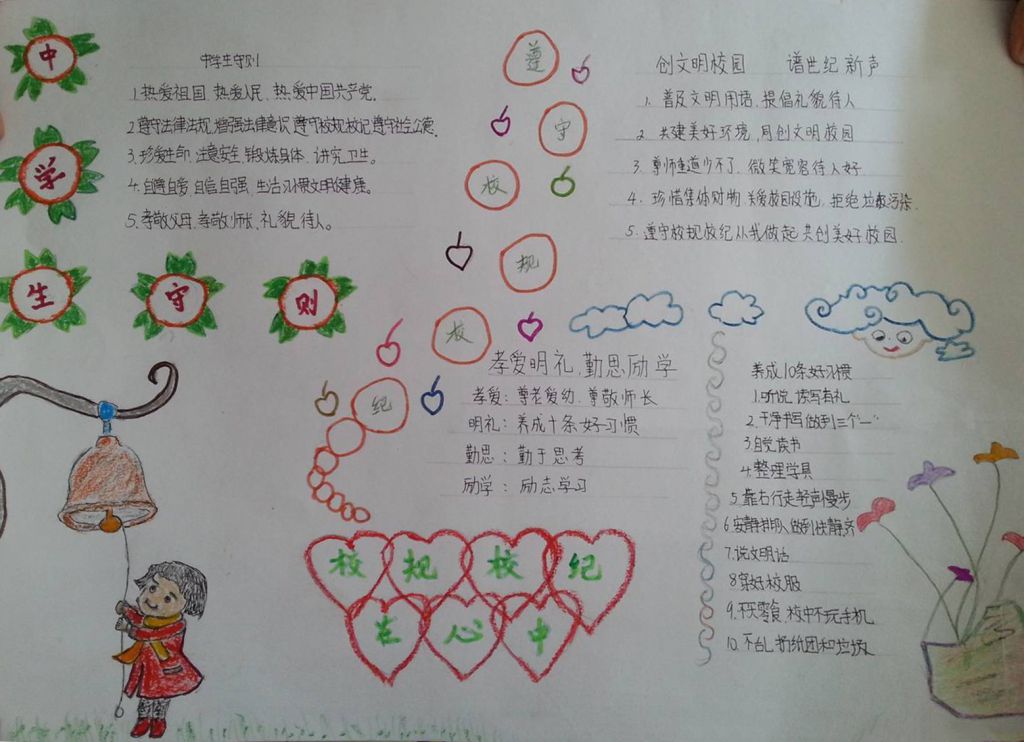 中学生守则
中学生守则
1.热爱祖国,热爱人民,热爱中国共产党。
2.遵守法律法规,增强法律意识.遵守校规校纪,遵守社会公德。
3.珍爱生命,注意安全,锻炼身体,讲究卫生。
4.自尊自爱,自信自强,生活习惯文明健康。
5.孝敬父母,孝敬师长,礼貌待人。
遵守校规校纪
创文明校园 谱世纪新声
1. 普及文明用语,提倡礼貌待人
2. 共建美好环境,同创文明校园
3. 尊师重道少不了,微笑宽容待人好
4. 珍惜集体财物,关爱校园设施,拒绝垃圾污染.
5. 遵守校规校纪从我做起,共创美好校园.
孝爱明礼,勤思励学
孝爱:尊老爱幼.尊敬师长
明礼:养成十条好习惯
勤思:勤于思考
励学:励志学习
养成10条好习惯
1.听说读写有礼
2.干净书写做到三个"一"
3.自觉读书
4.整理学具
5.靠右行走轻声慢步
6.安静排队做到快静齐
7.说文明话
8.穿好校服
9.不买零食,校中不玩手机
10.不乱扔纸团和垃圾
校规校纪
在心中